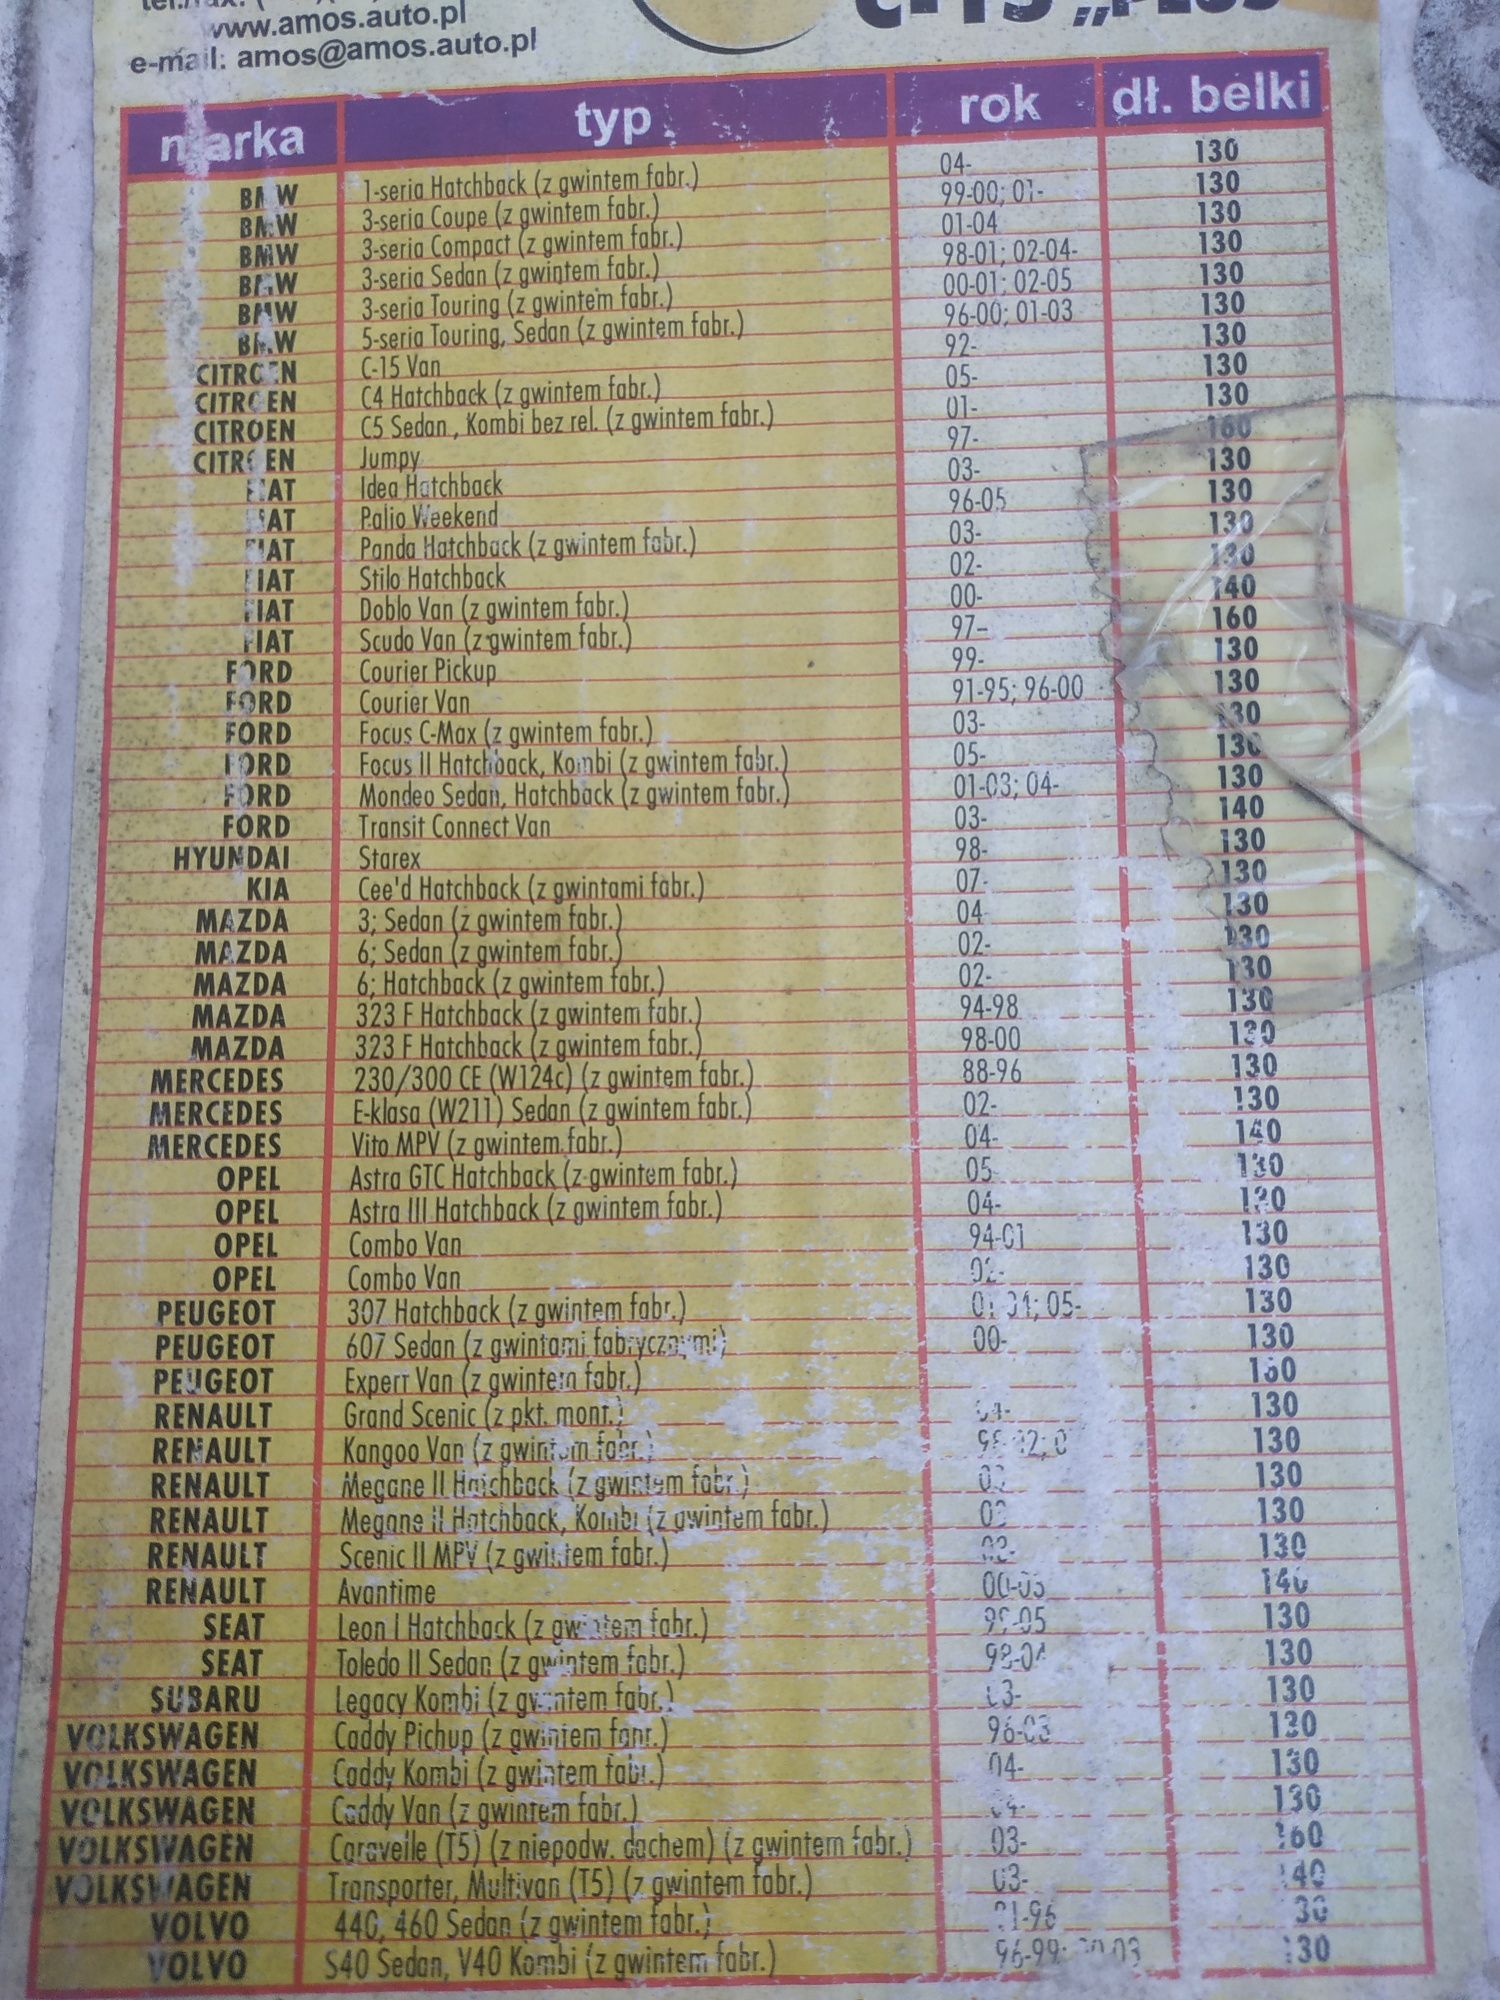 www.amos.auto.pl
e-mail: amos@amos.auto.pl
marka typ rok dł. belki
BMW 1-seria Hatchback (z gwintem fabr.) 04- 130
BMW 3-seria Coupe (z gwintem fabr.) 99-00; 01- 130
BMW 3-seria Compact (z gwintem fabr.) 01-04 130
BMW 3-seria Sedan (z gwintem fabr.) 98-01; 02-04- 130
BMW 3-seria Touring (z gwintem fabr.) 00-01; 02-05 130
BMW 5-seria Touring, Sedan (z gwintem fabr.) 96-00; 01-03 130
CITROEN C-15 Van 92- 130
CITROEN C4 Hatchback (z gwintem fabr.) 05- 130
CITROEN C5 Sedan, Kombi bez rel. (z gwintem fabr.) 01- 130
CITROEN Jumpy 97- 160
FIAT Idea Hatchback 03- 130
FIAT Palio Weekend 96-05 130
FIAT Panda Hatchback (z gwintem fabr.) 03- 130
FIAT Stilo Hatchback 02- 130
FIAT Doblo Van (z gwintem fabr.) 00- 140
FIAT Scudo Van (z gwintem fabr.) 97- 160
FORD Courier Pickup 99- 130
FORD Courier Van 91-95; 96-00 130
FORD Focus C-Max (z gwintem fabr.) 03- 130
FORD Focus II Hatchback, Kombi (z gwintem fabr.) 05- 130
FORD Mondeo Sedan, Hatchback (z gwintem fabr.) 01-03; 04- 130
FORD Transit Connect Van 03- 140
HYUNDAI Starex 98- 130
KIA Cee'd Hatchback (z gwintami fabr.) 07- 130
MAZDA 3; Sedan (z gwintem fabr.) 04 130
MAZDA 6; Sedan (z gwintem fabr.) 02- 130
MAZDA 6; Hatchback (z gwintem fabr.) 02- 130
MAZDA 323 F Hatchback (z gwintem fabr.) 94-98 130
MAZDA 323 F Hatchback (z gwintem fabr.) 98-00 130
MERCEDES 230/300 CE (W124c) (z gwintem fabr.) 88-96 130
MERCEDES E-klasa (W211) Sedan (z gwintem fabr.) 02- 130
MERCEDES Vito MPV (z gwintem fabr.) 04- 140
OPEL Astra GTC Hatchback (z gwintem fabr.) 05 130
OPEL Astra III Hatchback (z gwintem fabr.) 04- 130
OPEL Combo Van 94-01 130
OPEL Combo Van 02- 130
PEUGEOT 307 Hatchback (z gwintem fabr.) 05- 130
PEUGEOT 607 Sedan (z gwintami fabrycznymi) 00- 130
PEUGEOT Experr Van (z gwintem fabr.)
RENAULT Grand Scenic (z pkt. mont.) 130
RENAULT Kangoo Van (z gwintem fabr.) 130
RENAULT Megane II Hatchback (z gwintem fabr.) 130
RENAULT Megane II Hatchback, Kombi (z gwintem fabr.) 130
RENAULT Scenic II MPV (z gwintem fabr.) 130
RENAULT Avantime 00-03 140
SEAT Leon I Hatchback (z gwintem fabr.) 99-05 130
SEAT Toledo II Sedan (z gwintem fabr.) 98-04 130
SUBARU Legacy Kombi (z gwintem fabr.) 03- 130
VOLKSWAGEN Caddy Pichup (z gwintem fabr.) 96-03 130
VOLKSWAGEN Caddy Kombi (z gwintem fabr.) 04- 130
VOLKSWAGEN Caddy Van (z gwintem fabr.) 130
VOLKSWAGEN Caravelle (T5) (z niepodw. dachem) (z gwintem fabr.) 03- 160
VOLKSWAGEN Transporter, Multivan (T5) (z gwintem fabr.) 03- 140
VOLVO 440, 460 Sedan (z gwintem fabr.) 130
VOLVO S40 Sedan, V40 Kombi (z gwintem fabr.) 130